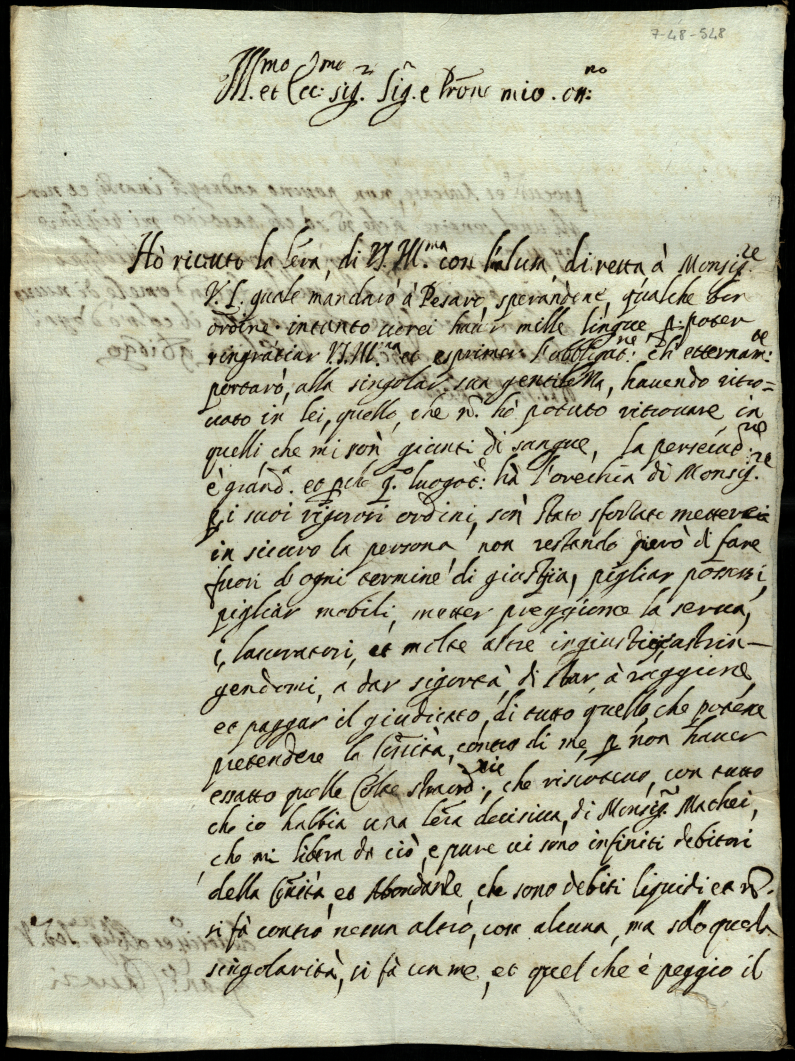 7-48-548
Ill.mo et Ecc.mo Sig.r Sig.e Prõne mio. on:no
Hò riceuto la lẽra, di V.S. Ill.ma con l'alusa diretta à Monsig.re
V.L. quale mandarò à Pesaro, sperandone, qualche bon
ordine. intanto uorei hauer mille lingue p. poter
ringratiar V.S. Ill.ma et esprimer l'obbligat.ne ch' etternam.te
portarò, alla singolar sua gentilezza, hauendo ritro=
uato in lei, quello, che nõ hò potuto ritrouare in
quelli che mi son giunti di sangue, la persecut.ne
è grand.a et p.che q.o luogot.e hà l'orechia di Monsig.re
e i suoi rigorosi ordini, son stato sforzato mettere
in sicuro la persona, non restando però di fare
fuori d'ogni termine di giustizia, pigliar possessi,
pigliar mobili, metter preggione la serua,
i, lauoratori, et molte altre ingiustizie, astrin-
gendomi, a dar sigortà, di star, à raggione,
et paggar il giudicato, di tutto quello, che potesse
pretendere la Com̃ità, contro di me, p non hauer
essatto quelle Colte straord.rie, che riscoteuo, con tutto
che io habbia una lẽra decisiua, di Monsig.r Mathei,
che mi libera da ciò, e pure ui sono infiniti debitori
della Com̃ità et Abondanze, che sono debiti liquidi et nõ.
si fà contro nesun altro, cosa alcuna, ma solo questa
singolarità, si fà con me, et quel che è peggio il